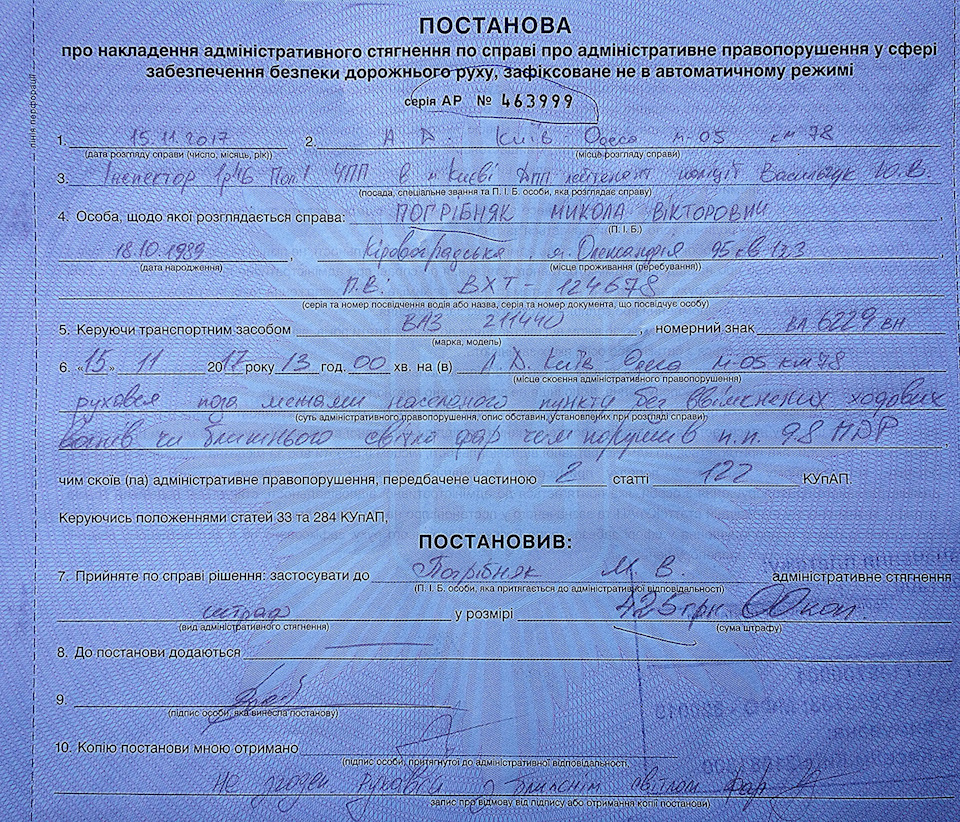 ПОСТАНОВА
про накладення адміністративного стягнення по справі про адміністративне правопорушення у сфері
забезпечення безпеки дорожнього руху, зафіксоване не в автоматичному режимі
серія АР № 463999
лінія перфорації
1. 15.11.2017 2. А.Д. Київ Одеса М-05 км 78
(дата розгляду справи (число, місяць, рік)) (місце розгляду справи)
3. Інспектор в м Києві ДПП лейтенант поліції Васильчук Ю.В.
(посада, спеціальне звання та П. І. Б. особи, яка розглядає справу)
4. Особа, щодо якої розглядається справа: ПОГРІБНЯК МИКОЛА ВІКТОРОВИЧ
(П. І. Б.)
18.10.1989, Кіровоградська, м. Олександрія 95 кв 123
(дата народження) (місце проживання (перебування))
П.В: ВХТ - 124678
(серія та номер посвідчення водія або назва, серія та номер документа, що посвідчує особу)
5. Керуючи транспортним засобом ВАЗ 211440, номерний знак ВА 6229 ВН
(марка, модель)
6. «15» 11 2017 року 13 год. 00 хв. на (в) А.Д Київ Одеса М-05 км 78
(місце скоєння адміністративного правопорушення)
рухався поза межами населеного пункту без ввімкнених ходових
(суть адміністративного правопорушення, опис обставин, установлених при розгляді справи)
вогнів чи ближнього світла фар чим порушив п.п. 9.8 ПДР,
чим скоїв (ла) адміністративне правопорушення, передбачене частиною 2 статті 122 КУпАП.
Керуючись положеннями статей 33 та 284 КУпАП,
ПОСТАНОВИВ:
7. Прийняте по справі рішення: застосувати до Погрібняк М. В. адміністративне стягнення
(П. І. Б. особи, яка притягається до адміністративної відповідальності)
штраф у розмірі 425 грн 00 коп.
(вид адміністративного стягнення) (сума штрафу)
8. До постанови додаються
9.
(підпис особи, яка винесла постанову)
10. Копію постанови мною отримано
(підпис особи, притягнутої до адміністративної відповідальності,
Не згоден рухався з ближнім світлом фар
запис про відмову від підпису або отримання копії постанови)